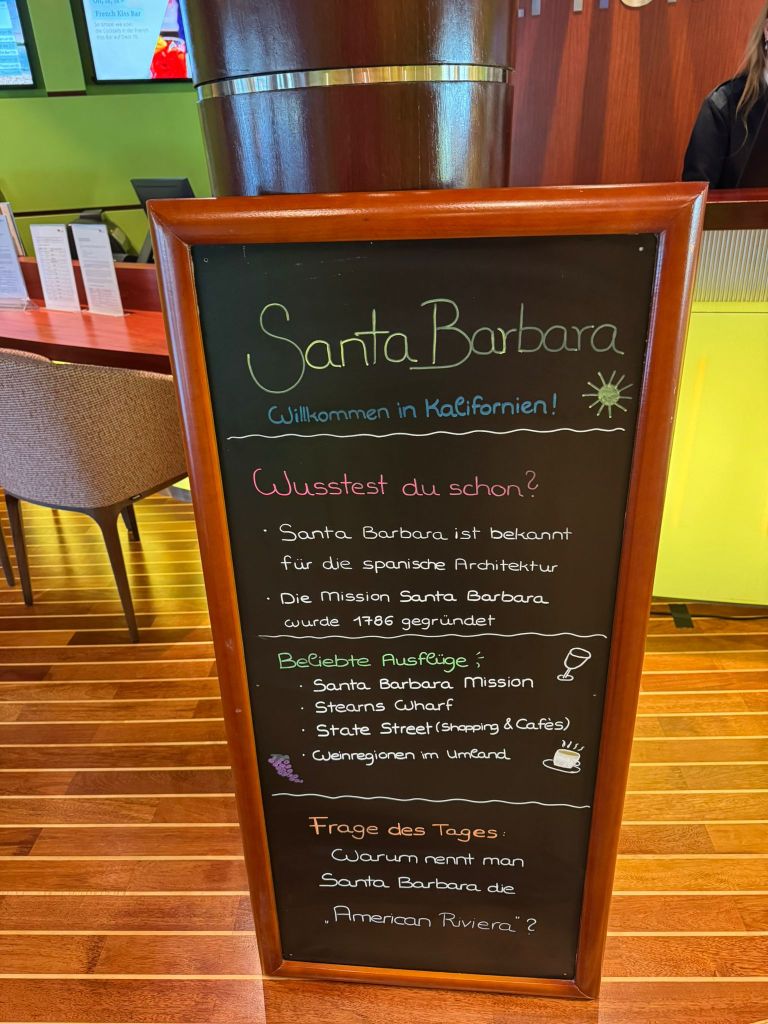 French Kiss Bar
Santa Barbara
Willkommen in Kalifornien!
Wusstest du schon?
· Santa Barbara ist bekannt
für die spanische Architektur
· Die Mission Santa Barbara
wurde 1786 gegründet
Beliebte Ausflüge:
· Santa Barbara Mission
· Stearns Wharf
· State Street (Shopping & Cafès)
· Weinregionen im Umland
Frage des Tages:
Warum nennt man
Santa Barbara die
„American Riviera"?